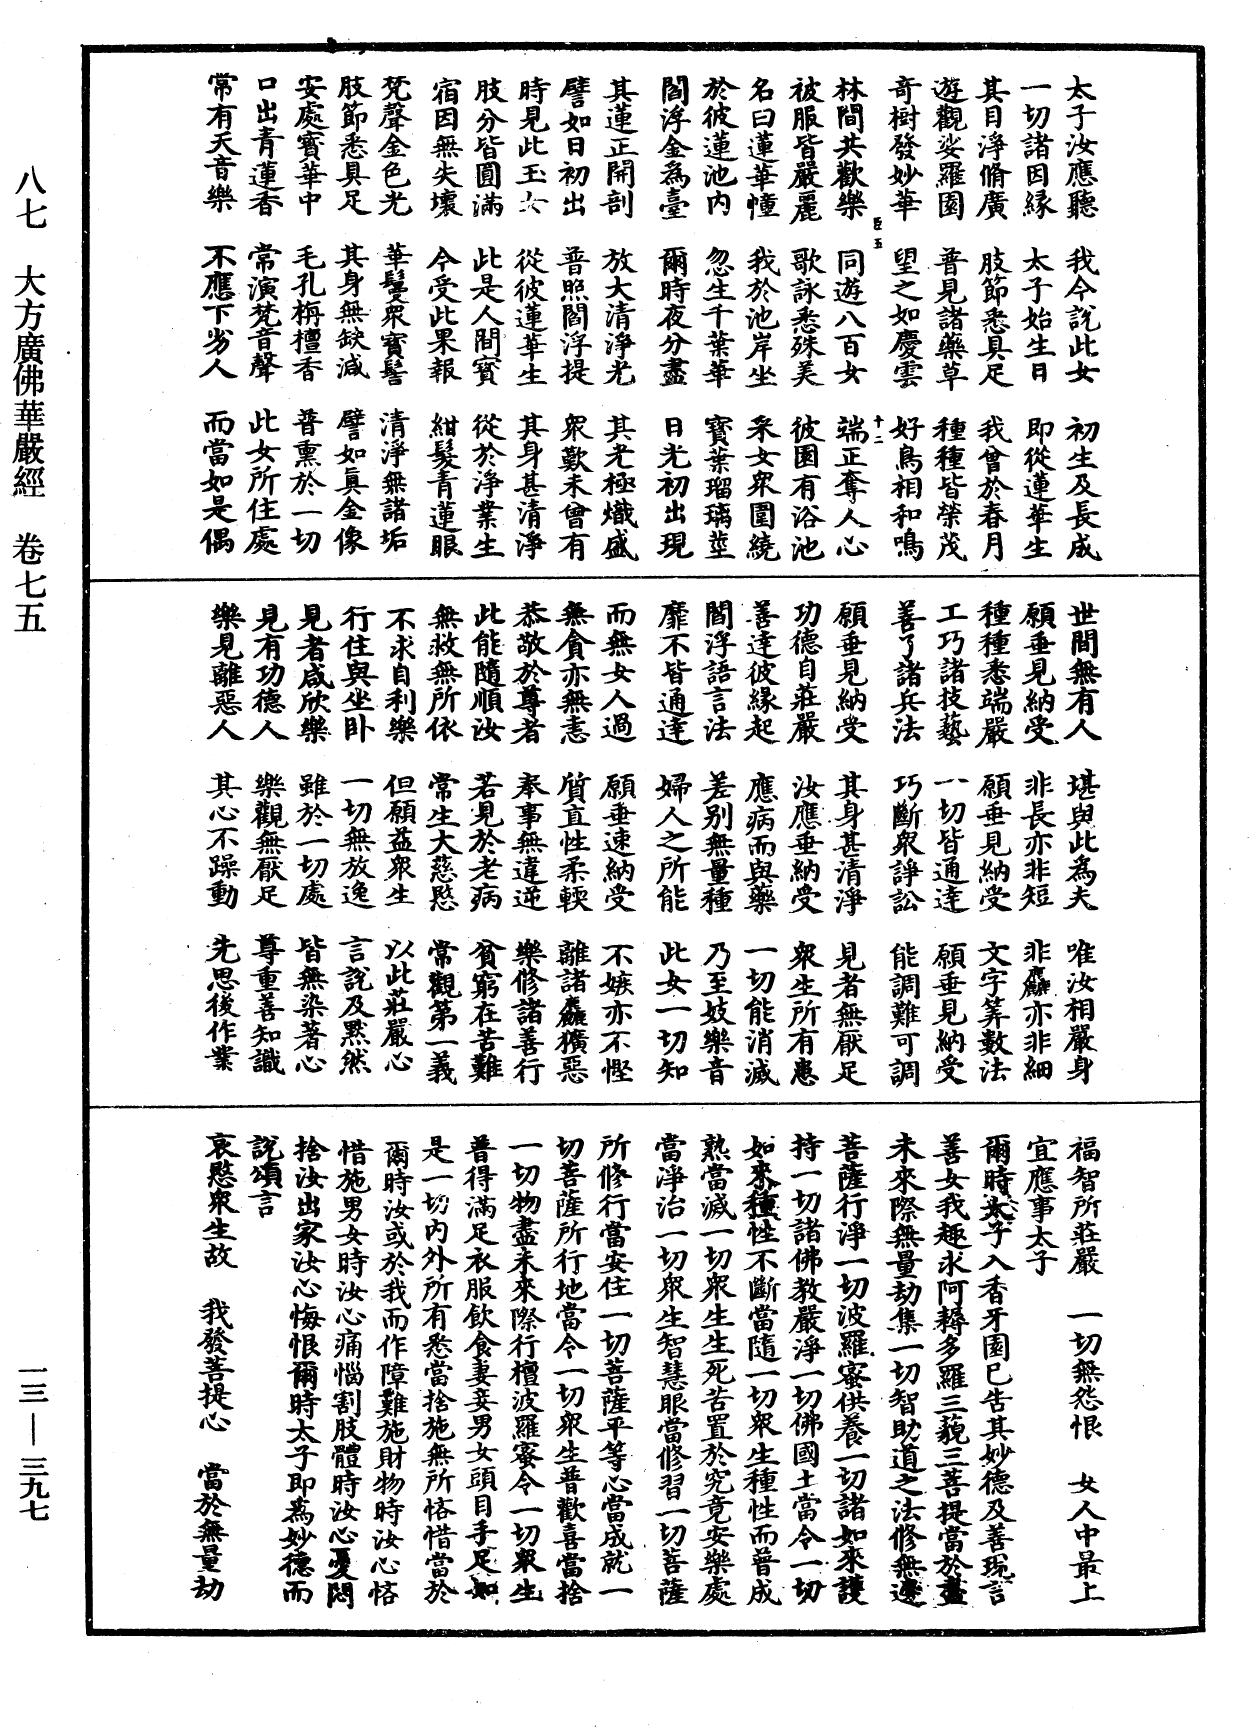 太子汝應聽　我今說此女　初生及長成
一切諸因緣　太子始生日　即從蓮華生
其目淨脩廣　肢節悉具足　我曾於春月
遊觀娑羅園　普見諸藥草　種種皆榮茂
奇樹發妙華　望之如慶雲　好鳥相和鳴
林間共歡樂　同遊八百女　端正奪人心
被服皆嚴麗　歌詠悉殊美　彼園有浴池
名曰蓮華幢　我於池岸坐　采女眾圍繞
於彼蓮池內　忽生千葉華　寶葉瑠璃莖
閻浮金為臺　爾時夜分盡　日光初出現
其蓮正開剖　放大清淨光　其光極熾盛
譬如日初出　普照閻浮提　眾歎未曾有
時見此玉女　從彼蓮華生　其身甚清淨
肢分皆圓滿　此是人間寶　從於淨業生
宿因無失壞　今受此果報　紺髮青蓮眼
梵聲金色光　華鬘眾寶髻　清淨無諸垢
肢節悉具足　其身無缺減　譬如真金像
安處寶華中　毛孔栴檀香　普熏於一切
口出青蓮香　常演梵音聲　此女所住處
常有天音樂　不應下劣人　而當如是偶
臣五　十二
世間無有人　堪與此為夫　唯汝相嚴身
願垂見納受　非長亦非短　非麤亦非細
種種悉端嚴　願垂見納受　文字筭數法
工巧諸技藝　一切皆通達　願垂見納受
善了諸兵法　巧斷眾諍訟　能調難可調
願垂見納受　其身甚清淨　見者無厭足
功德自莊嚴　汝應垂納受　眾生所有患
善達彼緣起　應病而與藥　一切能消滅
閻浮語言法　差別無量種　乃至妓樂音
靡不皆通達　婦人之所能　此女一切知
而無女人過　願垂速納受　不嫉亦不慳
無貪亦無恚　質直性柔輭　離諸麤獷惡
恭敬於尊者　奉事無違逆　樂修諸善行
此能隨順汝　若見於老病　貧窮在苦難
無救無所依　常生大慈愍　常觀第一義
不求自利樂　但願益眾生　以此莊嚴心
行住與坐臥　一切無放逸　言說及默然
見者咸欣樂　雖於一切處　皆無染著心
見有功德人　樂觀無厭足　尊重善知識
樂見離惡人　其心不躁動　先思後作業
福智所莊嚴　一切無怨恨　女人中最上
宜應事太子
爾時太子入香牙園已告其妙德及善現言
善女我趣求阿耨多羅三藐三菩提當於盡
未來際無量劫集一切智助道之法修無邊
菩薩行淨一切波羅蜜供養一切諸如來護
持一切諸佛教嚴淨一切佛國土當令一切
如來種性不斷當隨一切眾生種性而普成
熟當滅一切眾生生死苦置於究竟安樂處
當淨治一切眾生智慧眼當修習一切菩薩
所修行當安住一切菩薩平等心當成就一
切菩薩所行地當令一切眾生普歡喜當捨
一切物盡未來際行檀波羅蜜令一切眾生
普得滿足衣服飲食妻妾男女頭目手足如
是一切內外所有悉當捨施無所悋惜當於
爾時汝或於我而作障難施財物時汝心悋
惜施男女時汝心痛惱割肢體時汝心憂悶
捨汝出家汝心悔恨爾時太子即為妙德而
說頌言
哀愍眾生故　我發菩提心　當於無量劫
八七　大方廣佛華嚴經　卷七五
一三—三九七